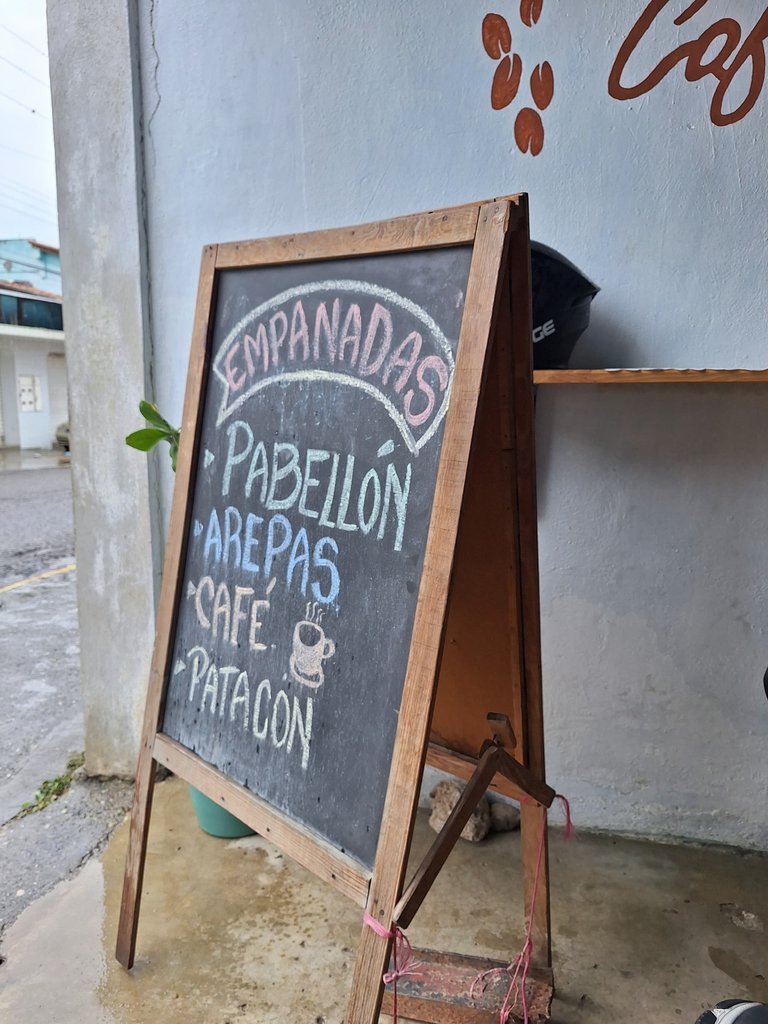 Caf
EMPANADAS
PABELLÓN
AREPAS
CAFÉ
PATACÓN
GE